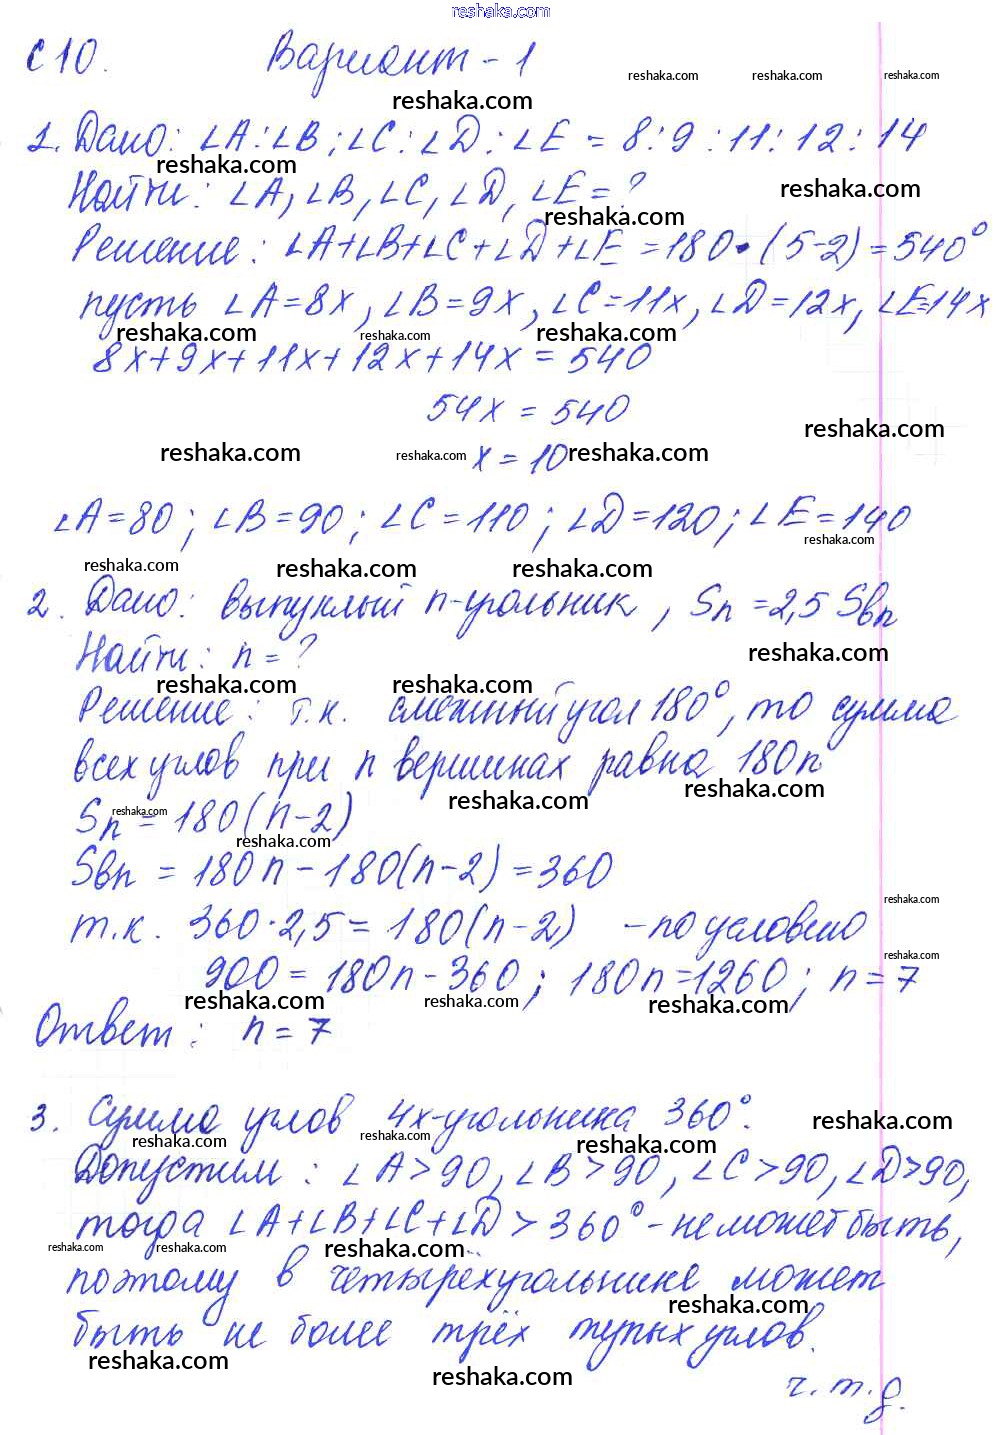 reshaka.com
С10. Вариант - 1
reshaka.com reshaka.com reshaka.com
reshaka.com
1. Дано: ∠A:∠B:∠C:∠D:∠E = 8:9:11:12:14
reshaka.com reshaka.com
Найти: ∠A, ∠B, ∠C, ∠D, ∠E = ?
reshaka.com
Решение: ∠A+∠B+∠C+∠D+∠E = 180·(5-2) = 540°
пусть ∠A=8x, ∠B=9x, ∠C=11x, ∠D=12x, ∠E=14x
reshaka.com reshaka.com reshaka.com
8x+9x+11x+12x+14x = 540
54x = 540
reshaka.com
reshaka.com reshaka.com x = 10 reshaka.com
∠A=80; ∠B=90; ∠C=110; ∠D=120; ∠E=140
reshaka.com
reshaka.com reshaka.com reshaka.com
2. Дано: выпуклый n-угольник, Sn = 2,5 Sвn
Найти: n = ?
reshaka.com
reshaka.com reshaka.com
Решение: т.к. смежный угол 180°, то сумма
всех углов при n вершинах равна 180n
reshaka.com reshaka.com
reshaka.com
Sn = 180(n-2)
reshaka.com
Sвn = 180n - 180(n-2) = 360
reshaka.com
т.к. 360·2,5 = 180(n-2) - по условию
reshaka.com
900 = 180n - 360; 180n = 1260; n = 7
reshaka.com reshaka.com reshaka.com
Ответ: n = 7
3. Сумма углов 4х-угольника 360°.
reshaka.com reshaka.com reshaka.com reshaka.com
Допустим: ∠A>90, ∠B>90, ∠C>90, ∠D>90,
тогда ∠A+∠B+∠C+∠D > 360° - не может быть,
reshaka.com reshaka.com reshaka.com
поэтому в четырёхугольнике может
reshaka.com
быть не более трёх тупых углов.
reshaka.com reshaka.com
ч.т.д.